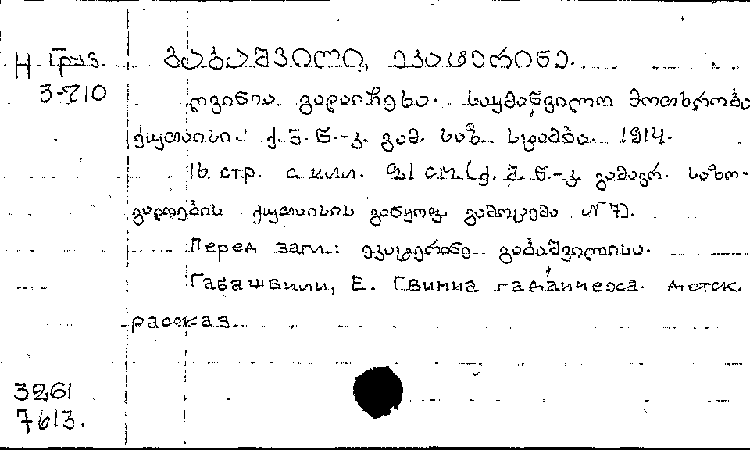 Н Груз.
3-210
გაბაშვილი, ეკატერინე.
ღვინია გადაიჩეხა. საყმაწვილო მოთხრობა
ქუთაისი. ქ.შ.წ.-კ. გამ. სტამბა. 1914.
16 стр. с илл. 21 см. (ქ.შ.წ.-კ გამავრ. საზო-
გადოების ქუთაისის განყოფ. გამოცემა N 7).
Перед загл: ეკატერინე გაბაშვილისა.
Габашвили, Е. Гвиниа гадаичеха. Детск.
рассказ.
3261
7613.